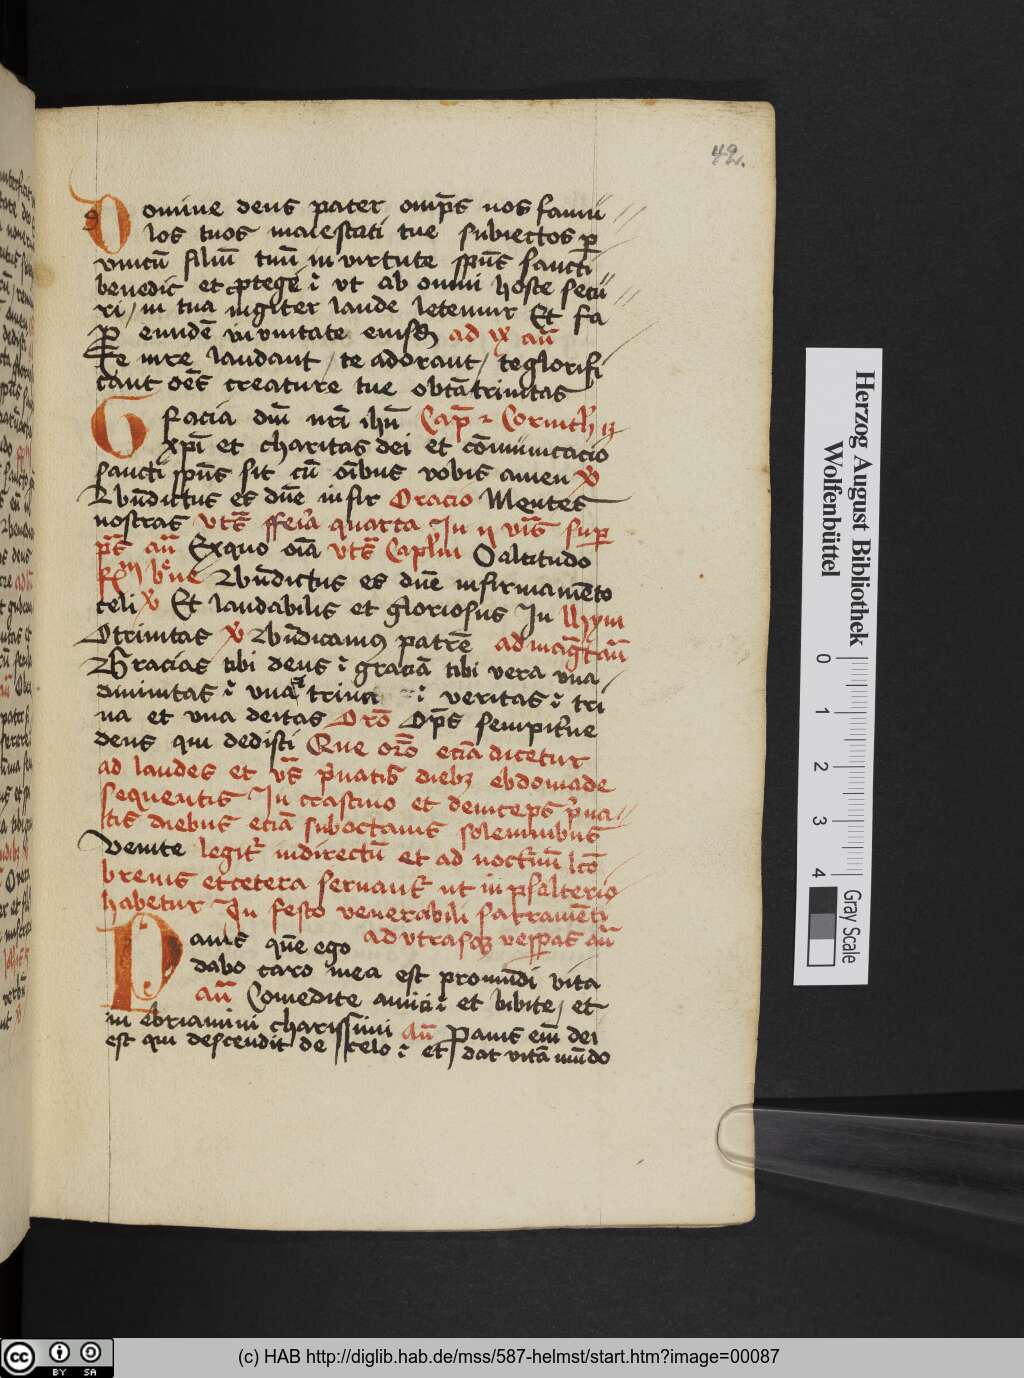 42.
Domine deus pater omp̄s nos famu
los tuos maiestati tue subiectos ꝑ
vnicū filiū tuū in virtute sp̄us sancti
benedic et ꝓtege ⁊ vt ab omni hoste secu
ri / in tua iugiter laude letemur Et fa
ꝑ eundē in vnitate eiusdē ad ix añ
Te iure laudant / te adorant / te glorifi
cant oēs creature tue o btā trinitas
Gracia dn̄i nr̄i ihū Capl̄ 2 Corinth 13
xp̄i et charitas dei et cōmunicacio
sancti sp̄us sit cū oībus vobis amen ℣
Bn̄dictus es dn̄e in fir Oracio Mentes
nostras vts̄ ffeīa quarta In ij vīs sup
ps̄ añ Ex quo oīa vts̄ Caplm O altitudo
bꝛue Bn̄dictus es dn̄e in firmamēto
celi ℣ Et laudabilis et gloriosus In hym
O trinitas ℣ Bn̄dicamꝰ patrē ad mag̅t añ
Gracias tibi deus ⁊ graciā tibi vera vna
diuinitas ⁊ vna trini ⁊ veritas ⁊ tri
na et vna deitas Orō Op̄s sempit̄ne
deus qui dedisti Que orō eciā dicetur
ad laudes et vs̄ p̄uatis diebꝫ ebdomade
sequentis In crastino et deinceps p̄ua
tis diebus eciā sub octauis solemnibus
Venite legit̄ indirectū et ad noct̄nū lcō
breuis et cetera seruant̄ ut in psalterio
habetur In festo venerabili sacramēti
Panis quē ego ad vtrasqꝫ vesꝑas añ
dabo caro mea est pro mūdi vita
añ Comedite amici ⁊ et bibite / et
in ebriamini charissimi añ Panis eni dei
est qui descendit de celo ⁊ et dat vitā mūdo
Herzog August Bibliothek
Wolfenbüttel
0
1
2
3
4
Gray Scale
cc BY SA
(c) HAB http://diglib.hab.de/mss/587-helmst/start.htm?image=00087